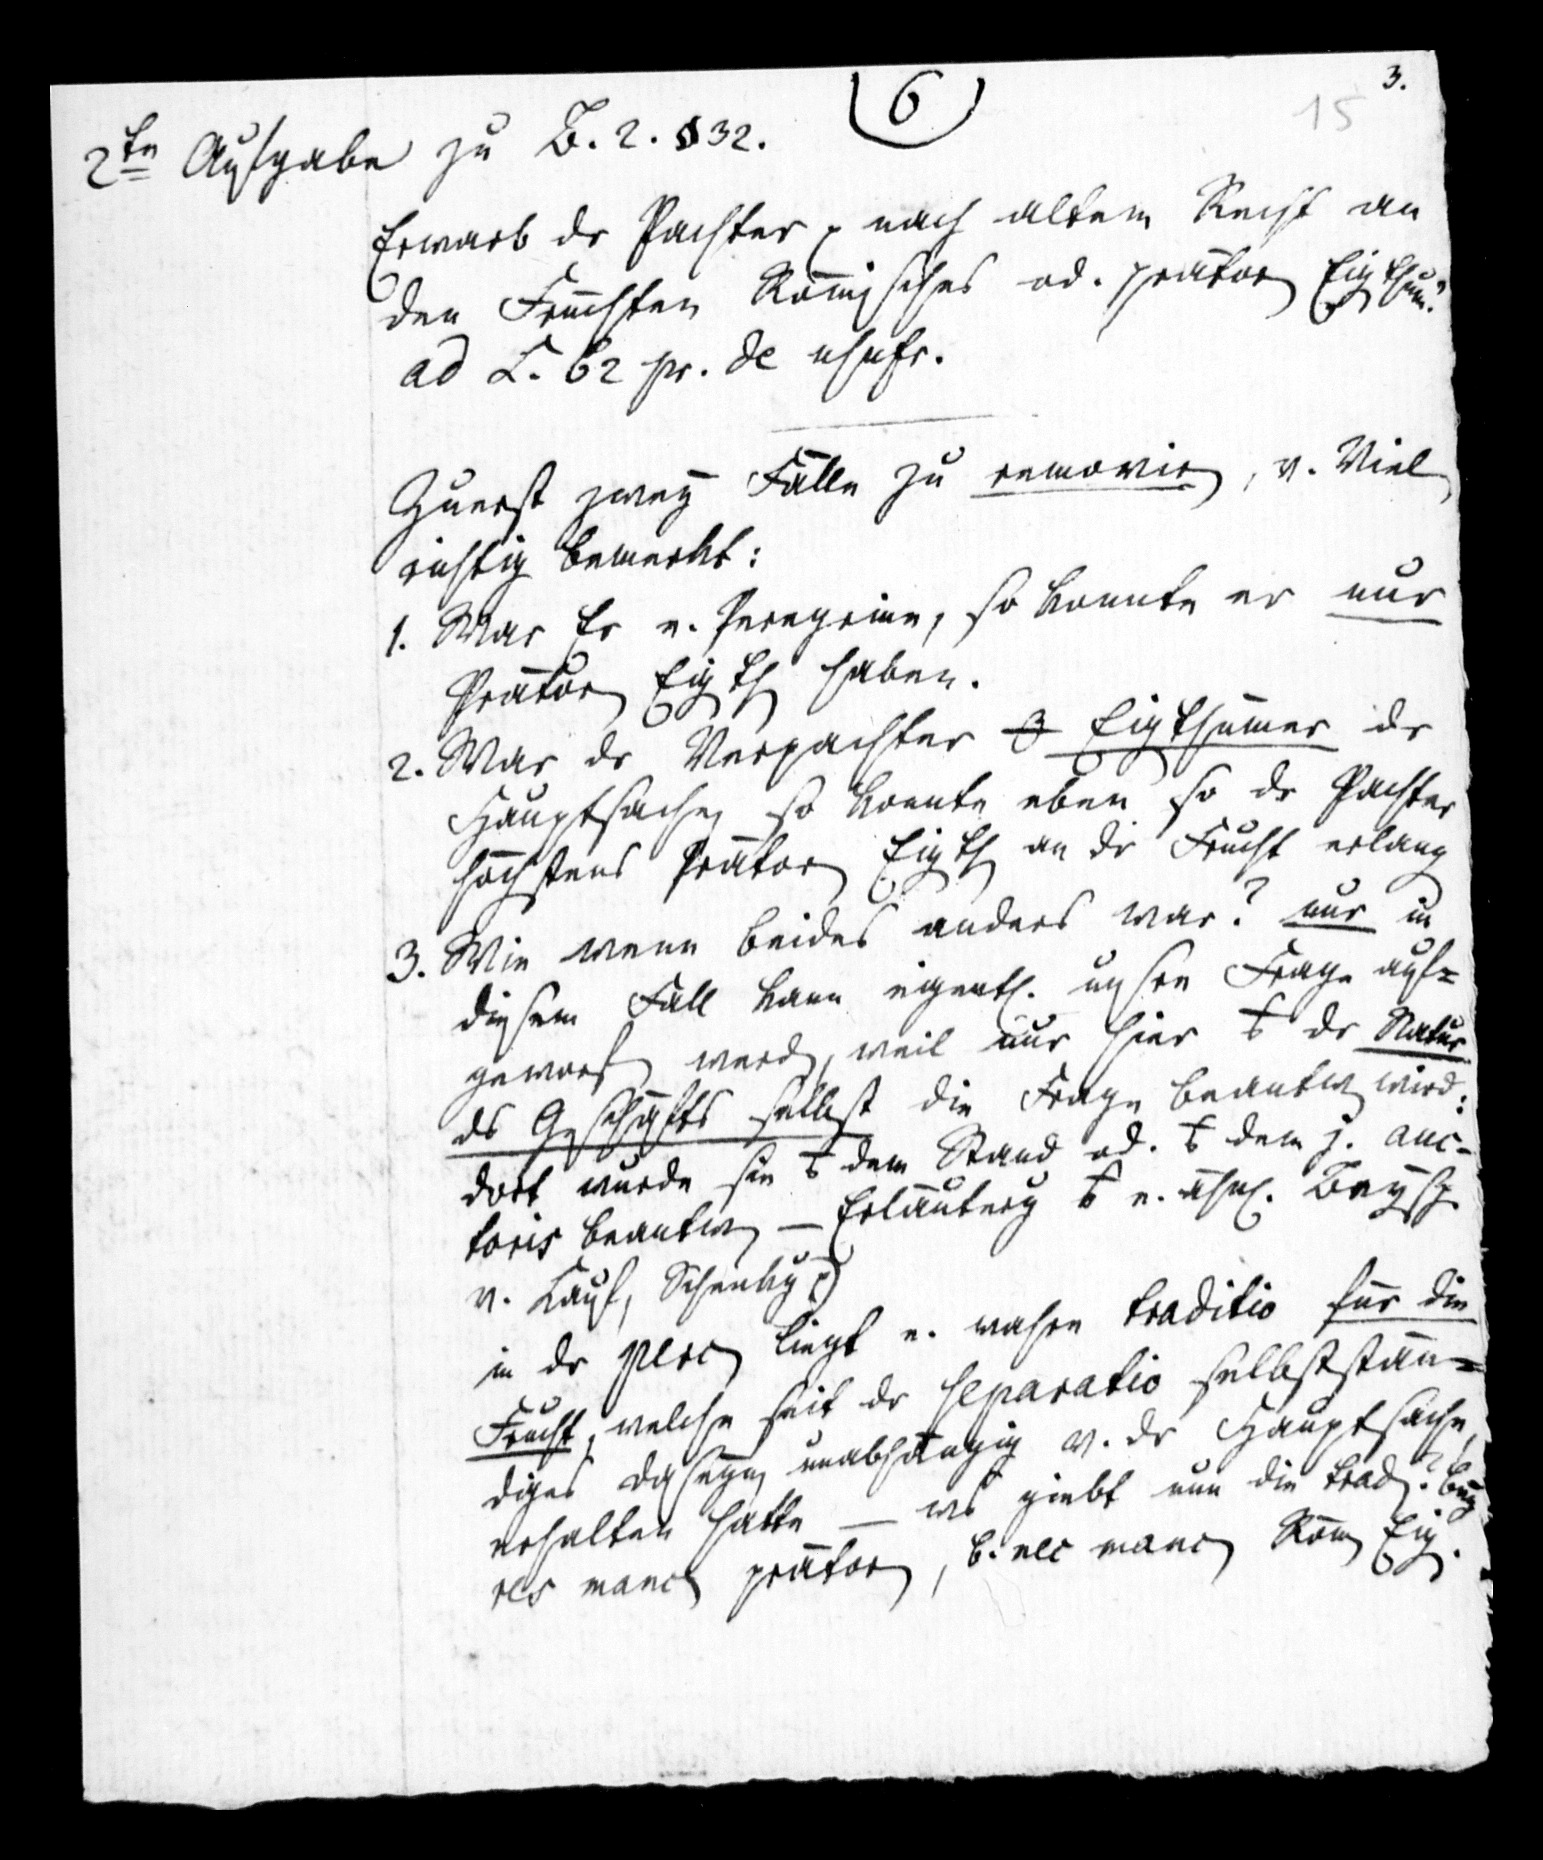 3.
6
15
2te Aufgabe zu B. 2. §32.
Erwarb dr Pachter nach altem Recht an
den Früchten Römisches od. prätor Eigthum?
ad L. 62 pr. de usufr.
Zuerst zwey Fälle zu removir, v. Viel
richtig bemerkt:
1. War Er e. Peregrine, so konnte er nur
Prätor Eigth haben.
2. War dr Verpachter Eigthümer dr
Hauptsache so konnte eben so dr Pachter
höchstens Prätor Eigth an dr Frucht erlang
3. Wie wenn beides anders war? nur in
diesem Fall kann eigentl. unsre Frage auf=
geworf werd, weil nur hier dr Natur
ds Geschäfts selbst die Frage beantw wird:
dort wurde sie dem Stand od. dem j. auc-
toris beantw — Erläuterg e. ähnl. Beysp
v. Kauf, Schenkg
in dr perc liegt e. wahre traditio für die
Frucht, welche seit dr separatio selbststän=
diges Daseyn unabhängig v. dr Hauptsache,
erhalten hatte — was giebt nun die trad.? bey
res manc prätor, b. nec manc Röm Eig.